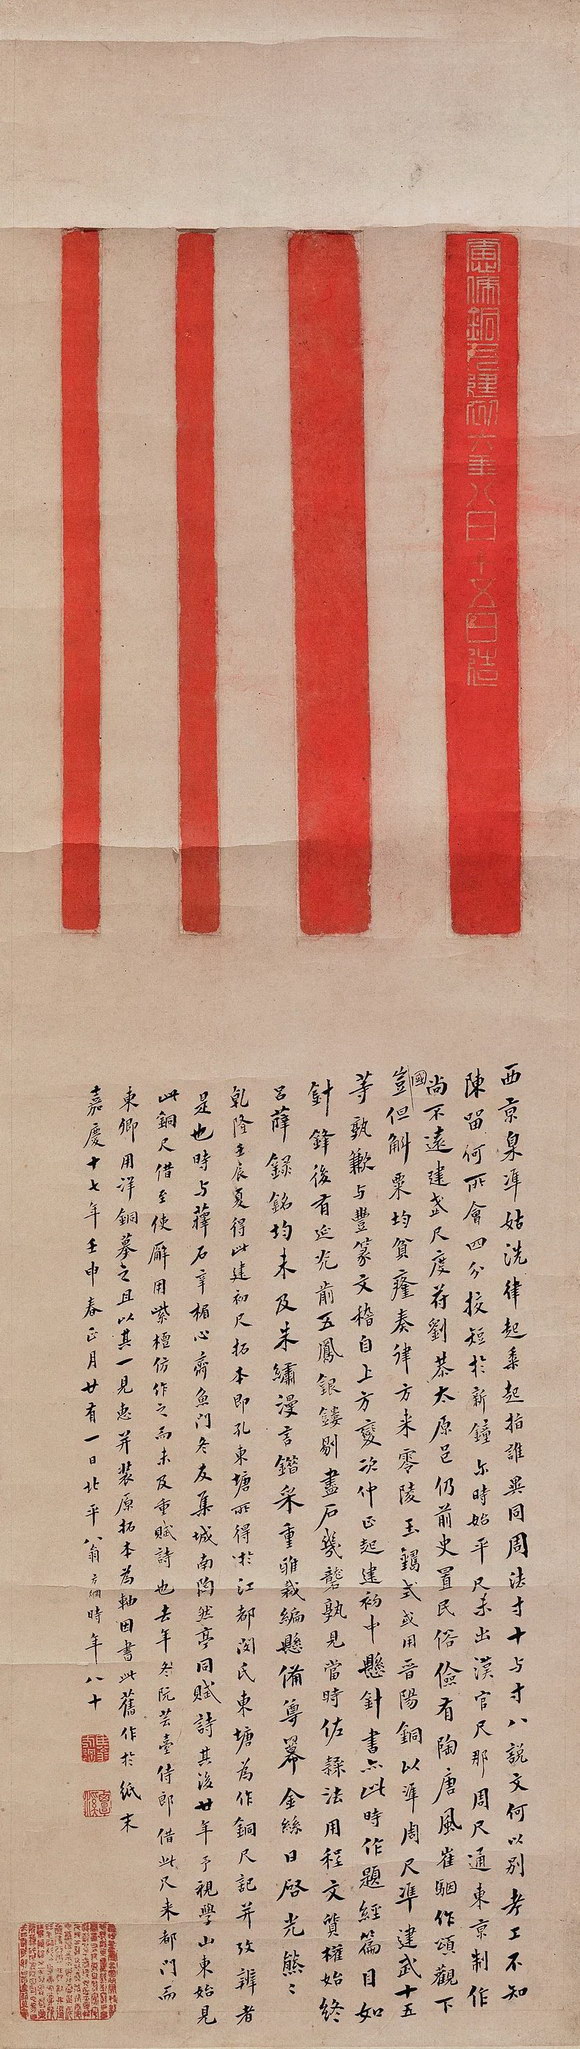 慮俿銅尺建初六年八月十五日造
西京臬準姑洗律起黍起指誰異同周法寸十与寸八說文何以別考工不知
陳留何所會四分挍短於新鐘尔時始平尺未出漢官尺那周尺通東京制作
尚不遠建武尺度荷劉恭太原邑仍前史置民俗儉有陶唐風崔駰作頌觀下
國豈但斛粟均貧癃奏律方来零陵玉鐫式或用晋陽銅以準周尺準建武十五
等孰歉与豐篆文稽自上方變次仲正起建初中懸針書点此時作題經篇目如
針鋒後有延光前五鳳銀鏤剔畫石幾礱孰見當時佐隸法用程文質権始終
吕薛録銘均未及朱繡漫言鍇采重雅裁編懸備尊冪金絲日啓光熊〻
乾隆壬辰夏得此建初尺拓本即孔東塘所得於江都閔氏東塘為作銅尺記并攷辨者
是也時与蘀石辛楣心齋魚門冬友集城南陶然亭同賦詩其後廿年予視學山東始見
此銅尺借至使廨用紫檀仿作之而未及重賦詩也去年冬阮芸臺侍郎借此尺来都門而
東卿用洋銅摹之且以其一見惠并装原拓本為軸因書此舊作於紙末
嘉慶十七年壬申春正月廿有一日北平八翁方綱時年八十